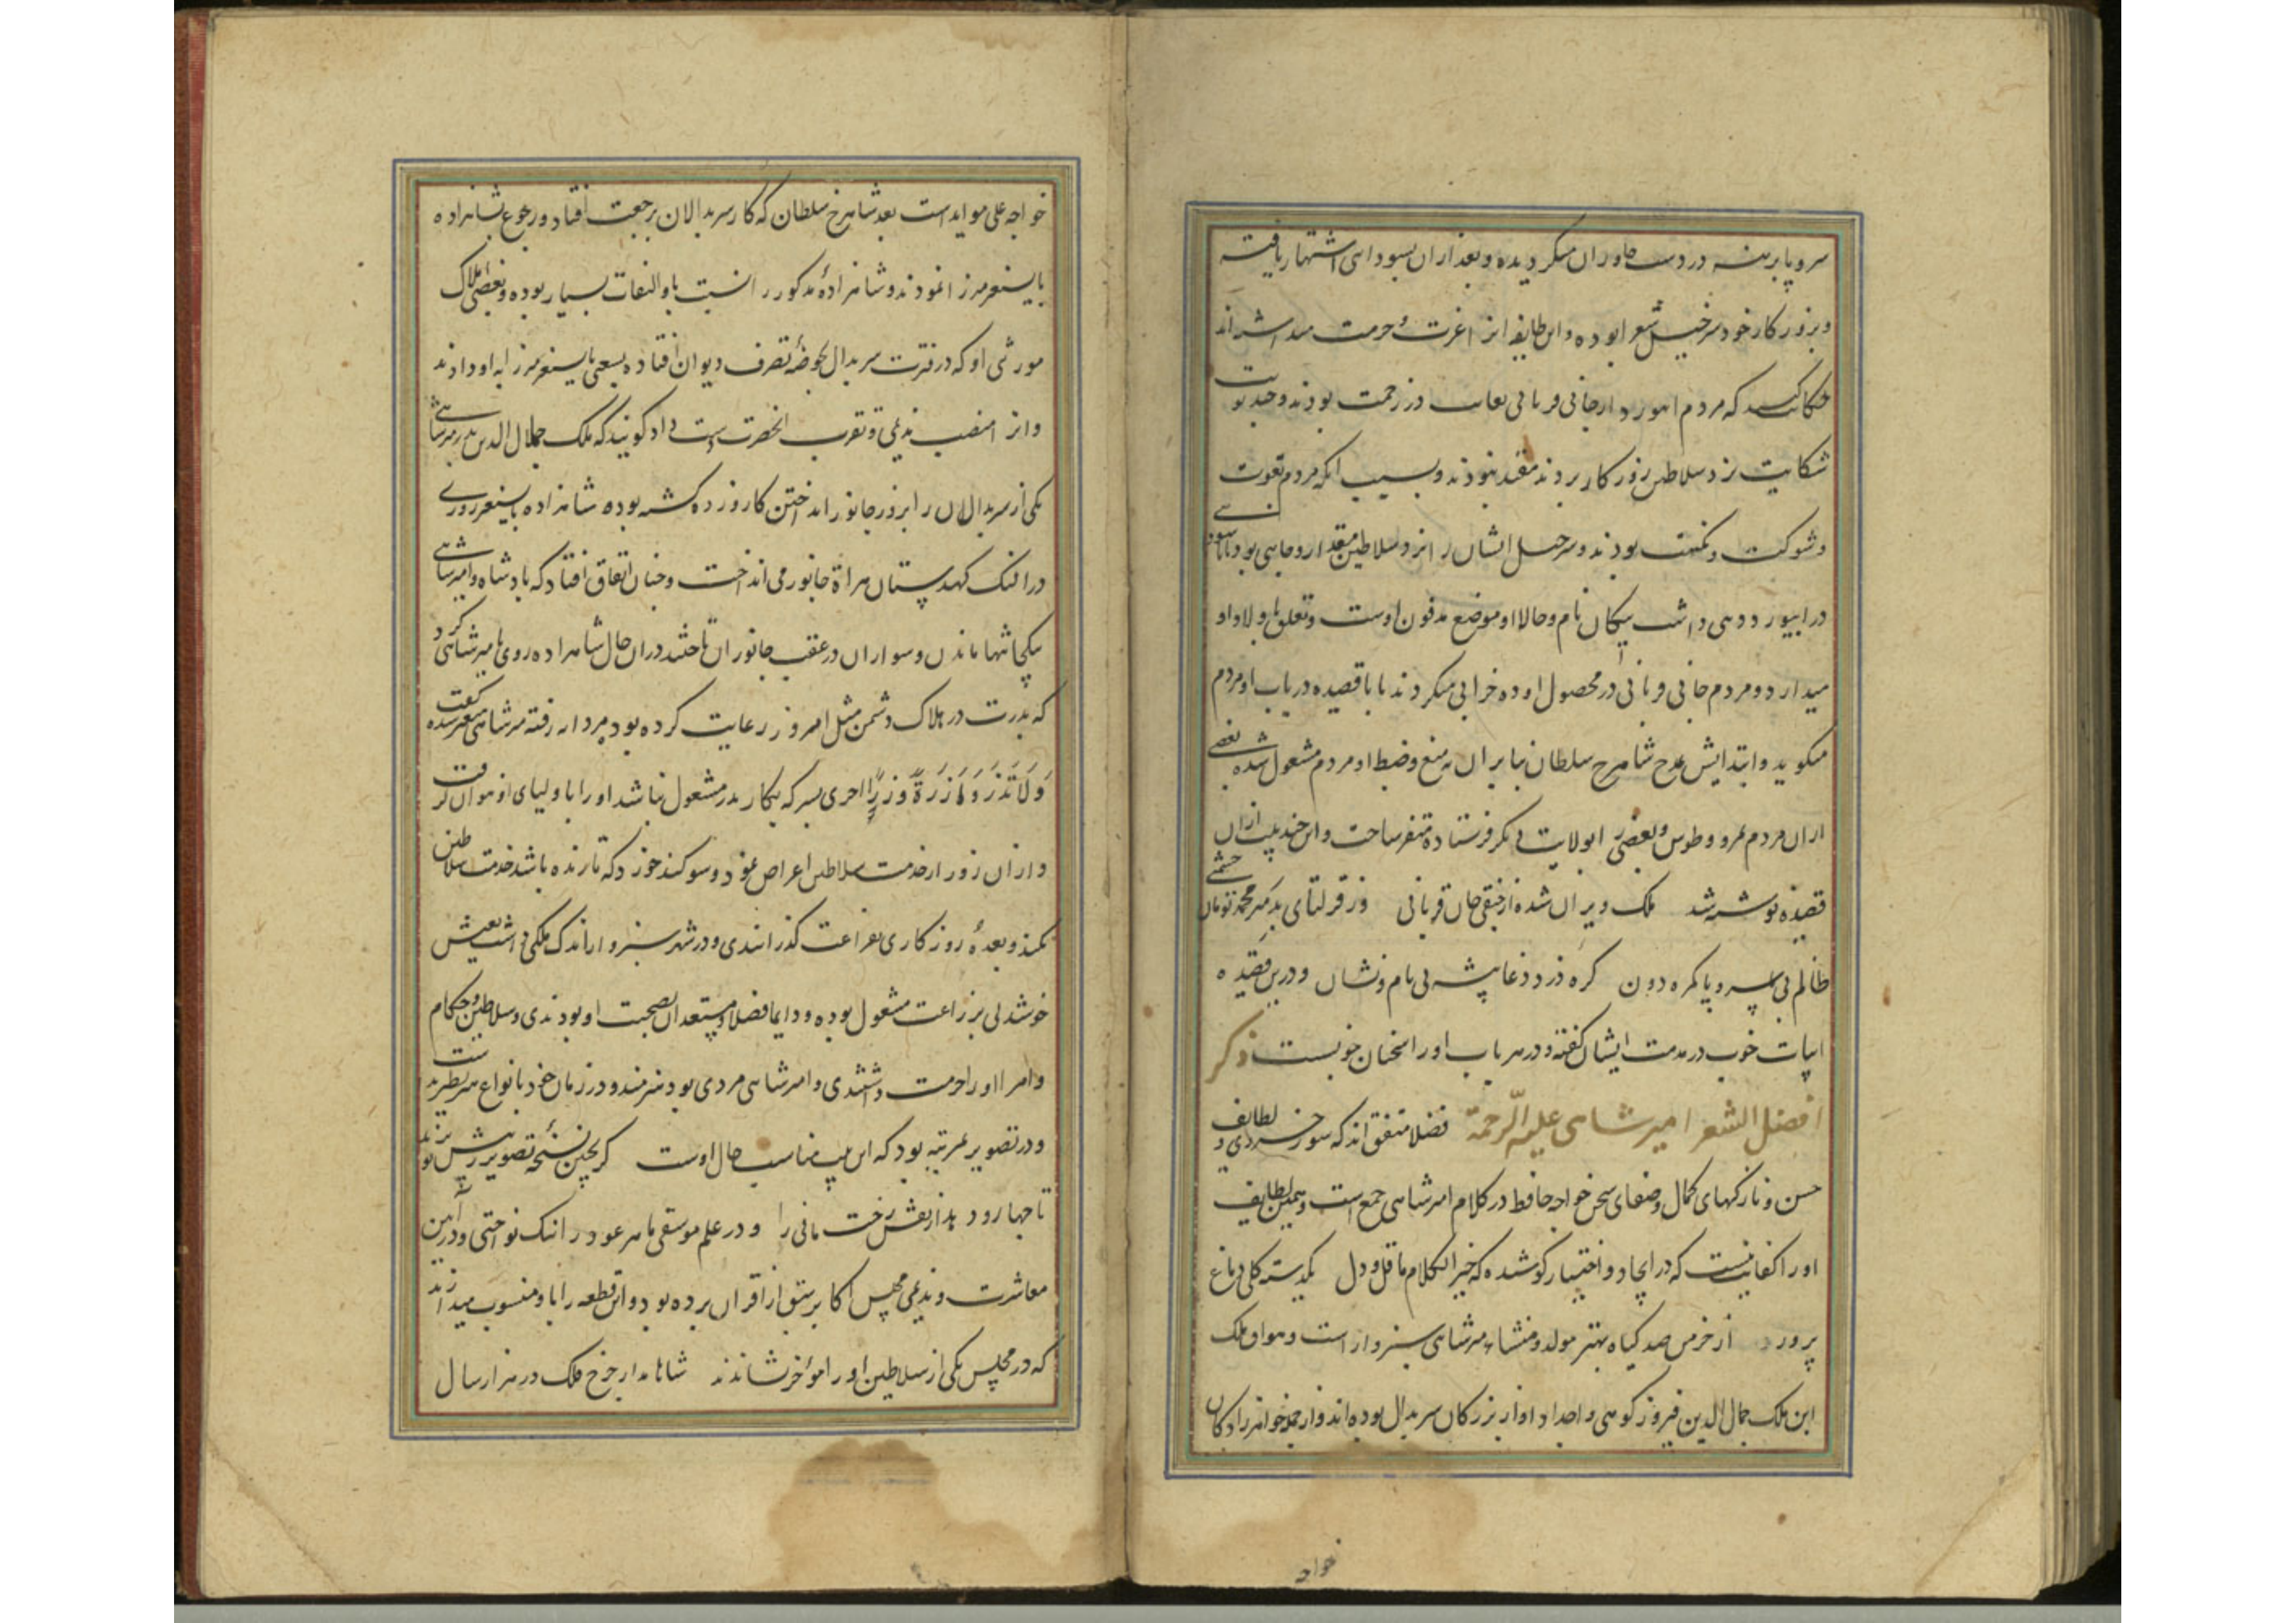 سر و پا برهنه در دشت خاوران میگردیده و بعد از آن بسودائی اشتهار یافته
و بروزکار خود سرخیل شعرا بوده و این طایفه او را عزت و حرمت میداشته‌اند
حکایت کنند که مردم ابیورد از جانی قربانی بغایت در زحمت بودند و چند نوبت
شکایت نزد سلاطین روزکار بردند مفید نبود و بسبب آنکه مردم بقوت
و شوکت و مکنت بودند و سرخیل ایشان را نزد سلاطین مقدار و جاهی بود بابا سودائی
در ابیورد دهی داشت سیکان نام و حالا آن موضع مدفن اوست و تعلق باولاد او
میدارد و مردم جانی قربانی در محصول او ده خرابی میکردند بابا قصیده در باب او مردم
میکوید و ابتدایش مدح شاهرخ سلطان بنابران به منع و ضبط او مردم مشغول شده بعضی
از آن مردم بمرو و طوس و بعضی را بولایت دیکر فرستاده متفرق ساخت و این چند بیت از آن
قصیده نوشته شد ملک ویران شده از جنقی جان قربانی وز قرلتای بد میر محمد تومان
ظالم بی سر و پا کمره دون کره دزد دغا پیشه بی نام و نشان و درین قصیده
ابیات خوب در مذمت ایشان کفته و در هر باب او را سخنان خوبست ذکر
افضل الشعرا امیر شاهی علیه الرحمة فضلا متفق‌اند که سوز خسرو و لطایف
حسن و نازکیهای کمال و صفای سخن خواجه حافظ در کلام امیر شاهی جمع است و همین لطایف
او را کفایتست که در ایجاد و اختصار کوشیده که خیر الکلام ما قل و دل یکدسته کل دماغ
پرور از خرمن صد کیاه بهتر مولد و منشاء میر شاهی سبزوار است و هو آق ملک
ابن ملک جمال الدین فیروزکوهی و اجداد او از بزرکان سربدال بوده‌اند و از جمله خواهرزادکان
خواجه
خواجه علی موید است بعد شاهرخ سلطان که کار سربدالان برجعت افتاد و رجوع بشاهزاده
بایسنغر میرزا نمودند و شاهزاده مذکور را نسبت باو التفات بسیار بوده و بعضی املاک
موروثی او که در فترت سربدال بحوضه تصرف دیوان افتاده بسعی بایسنغر میرزا به او دادند
و او را منصب ندیمی و تقرب آنحضرت دست داد کویند که ملک جمال الدین پدر میر شاهی
یکی از سربدالان را بروز جانور انداختن کارد زده کشته بوده شاهزاده بایسنغر روزی
در النک کهدستان هراة جانور می‌انداخت و چنان اتفاق افتاد که پادشاه و امیر شاهی
یکجا تنها ماندن و سواران در عقب جانوران تاختند در آن حال شاهزاده روی بامیر شاهی کرد
که پدرت در هلاک دشمن مثل امروز رعایت کرده بود مردانه رفته میر شاهی متغیر شده کفت
وَلَا تَزِرُ وَازِرَةٌ وِزْرَ اُخری پسر که بکار پدر مشغول نباشد او را با ولیای او نتوان کرفت
و از آن روز از خدمت سلاطین اعراض نمود و سوکند خورد که تا زنده باشد خدمت سلاطین
نکند و بعده روزکاری بفراغت کذرانیدی و در شهر سبزوار اندک ملکی داشت بعیش
خوشدلی بزراعت مشغول بوده و دایما فضلا و مستعدان بصحبت او بودندی و سلاطین و حکام
و امرا او را حرمت داشتندی و امیر شاهی مردی بود هنرمند و در زمان خود بانواع هنر نظیر نداشت
و در تصویر بمرتبه بود که این بیت مناسب حال اوست کر بچین نسخه تصویر ترا پیش برند
تا چها رود بداز نقش رخت مانی را و در علم موسیقی ماهر عود را نیک نواختی و در آیین
معاشرت و ندیمی مجلس اکابر سبق از اقران برده بود و این قطعه را باو منسوب میدارند
که در مجلس یکی از سلاطین او را مؤخر نشاندند شاها مدار چرخ فلک در هزار سال